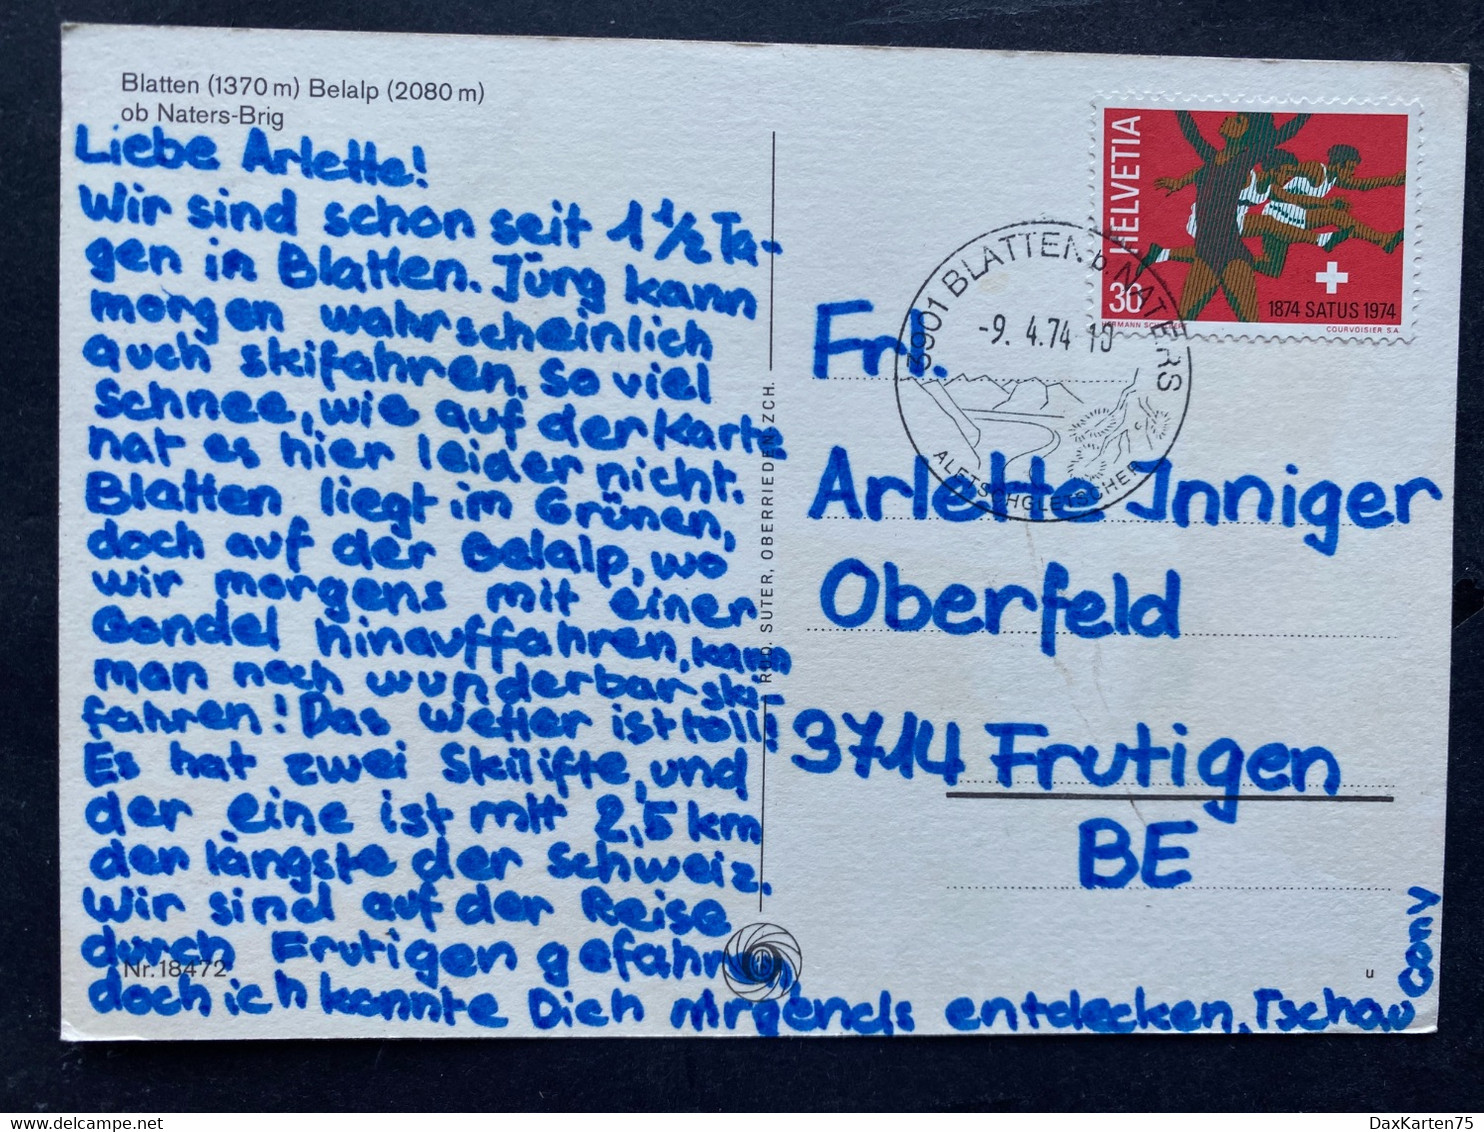 Blatten (1370 m) Belalp (2080 m)
ob Naters-Brig
Liebe Arlette!
Wir sind schon seit 1 1/2 Ta-
gen in Blatten. Jürg kann
morgen wahrscheinlich
auch skifahren. So viel
Schnee, wie auf der Karte
hat es hier leider nicht.
Blatten liegt im Grünen,
doch auf der Belalp, wo
wir morgens mit einer
Gondel hinauffahren, kann
man noch wunderbar ski-
fahren! Das Wetter ist toll!
Es hat zwei Skilifte, und
der eine ist mit 2,5 km
der längste der Schweiz.
Wir sind auf der Reise
durch Frutigen gefahren,
doch ich konnte Dich nirgends entdecken, Tschau
Cony
Nr. 18472
ROD. SUTER, OBERRIEDEN ZCH.
HELVETIA
30
1874 SATUS 1974
HERMANN SCHELBERT
COURVOISIER S.A.
3901 BLATTEN b. NATERS
-9. 4.74
ALETSCHGLETSCHER
Frl.
Arlette Inniger
Oberfeld
3714 Frutigen
BE
u
DaxKarten75